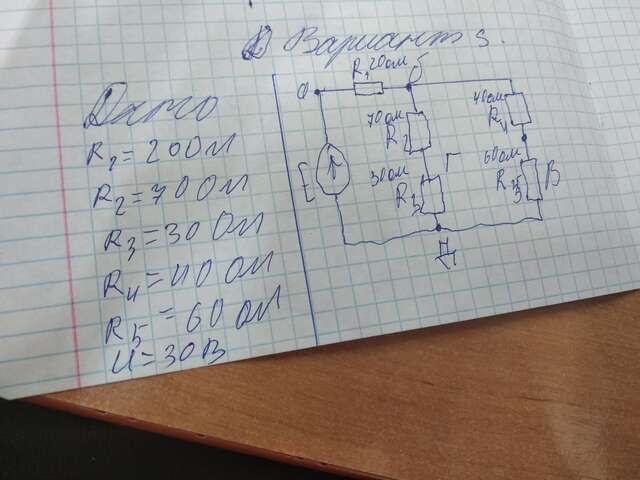 Вариант 3.
Дано
R1=20Ом
R2=70Ом
R3=30Ом
R4=40Ом
R5=60Ом
U=30В
а
R1 20ом
б
70ом
R2
30ом
R3
Г
40ом
R4
60ом
R5
В
E
Д